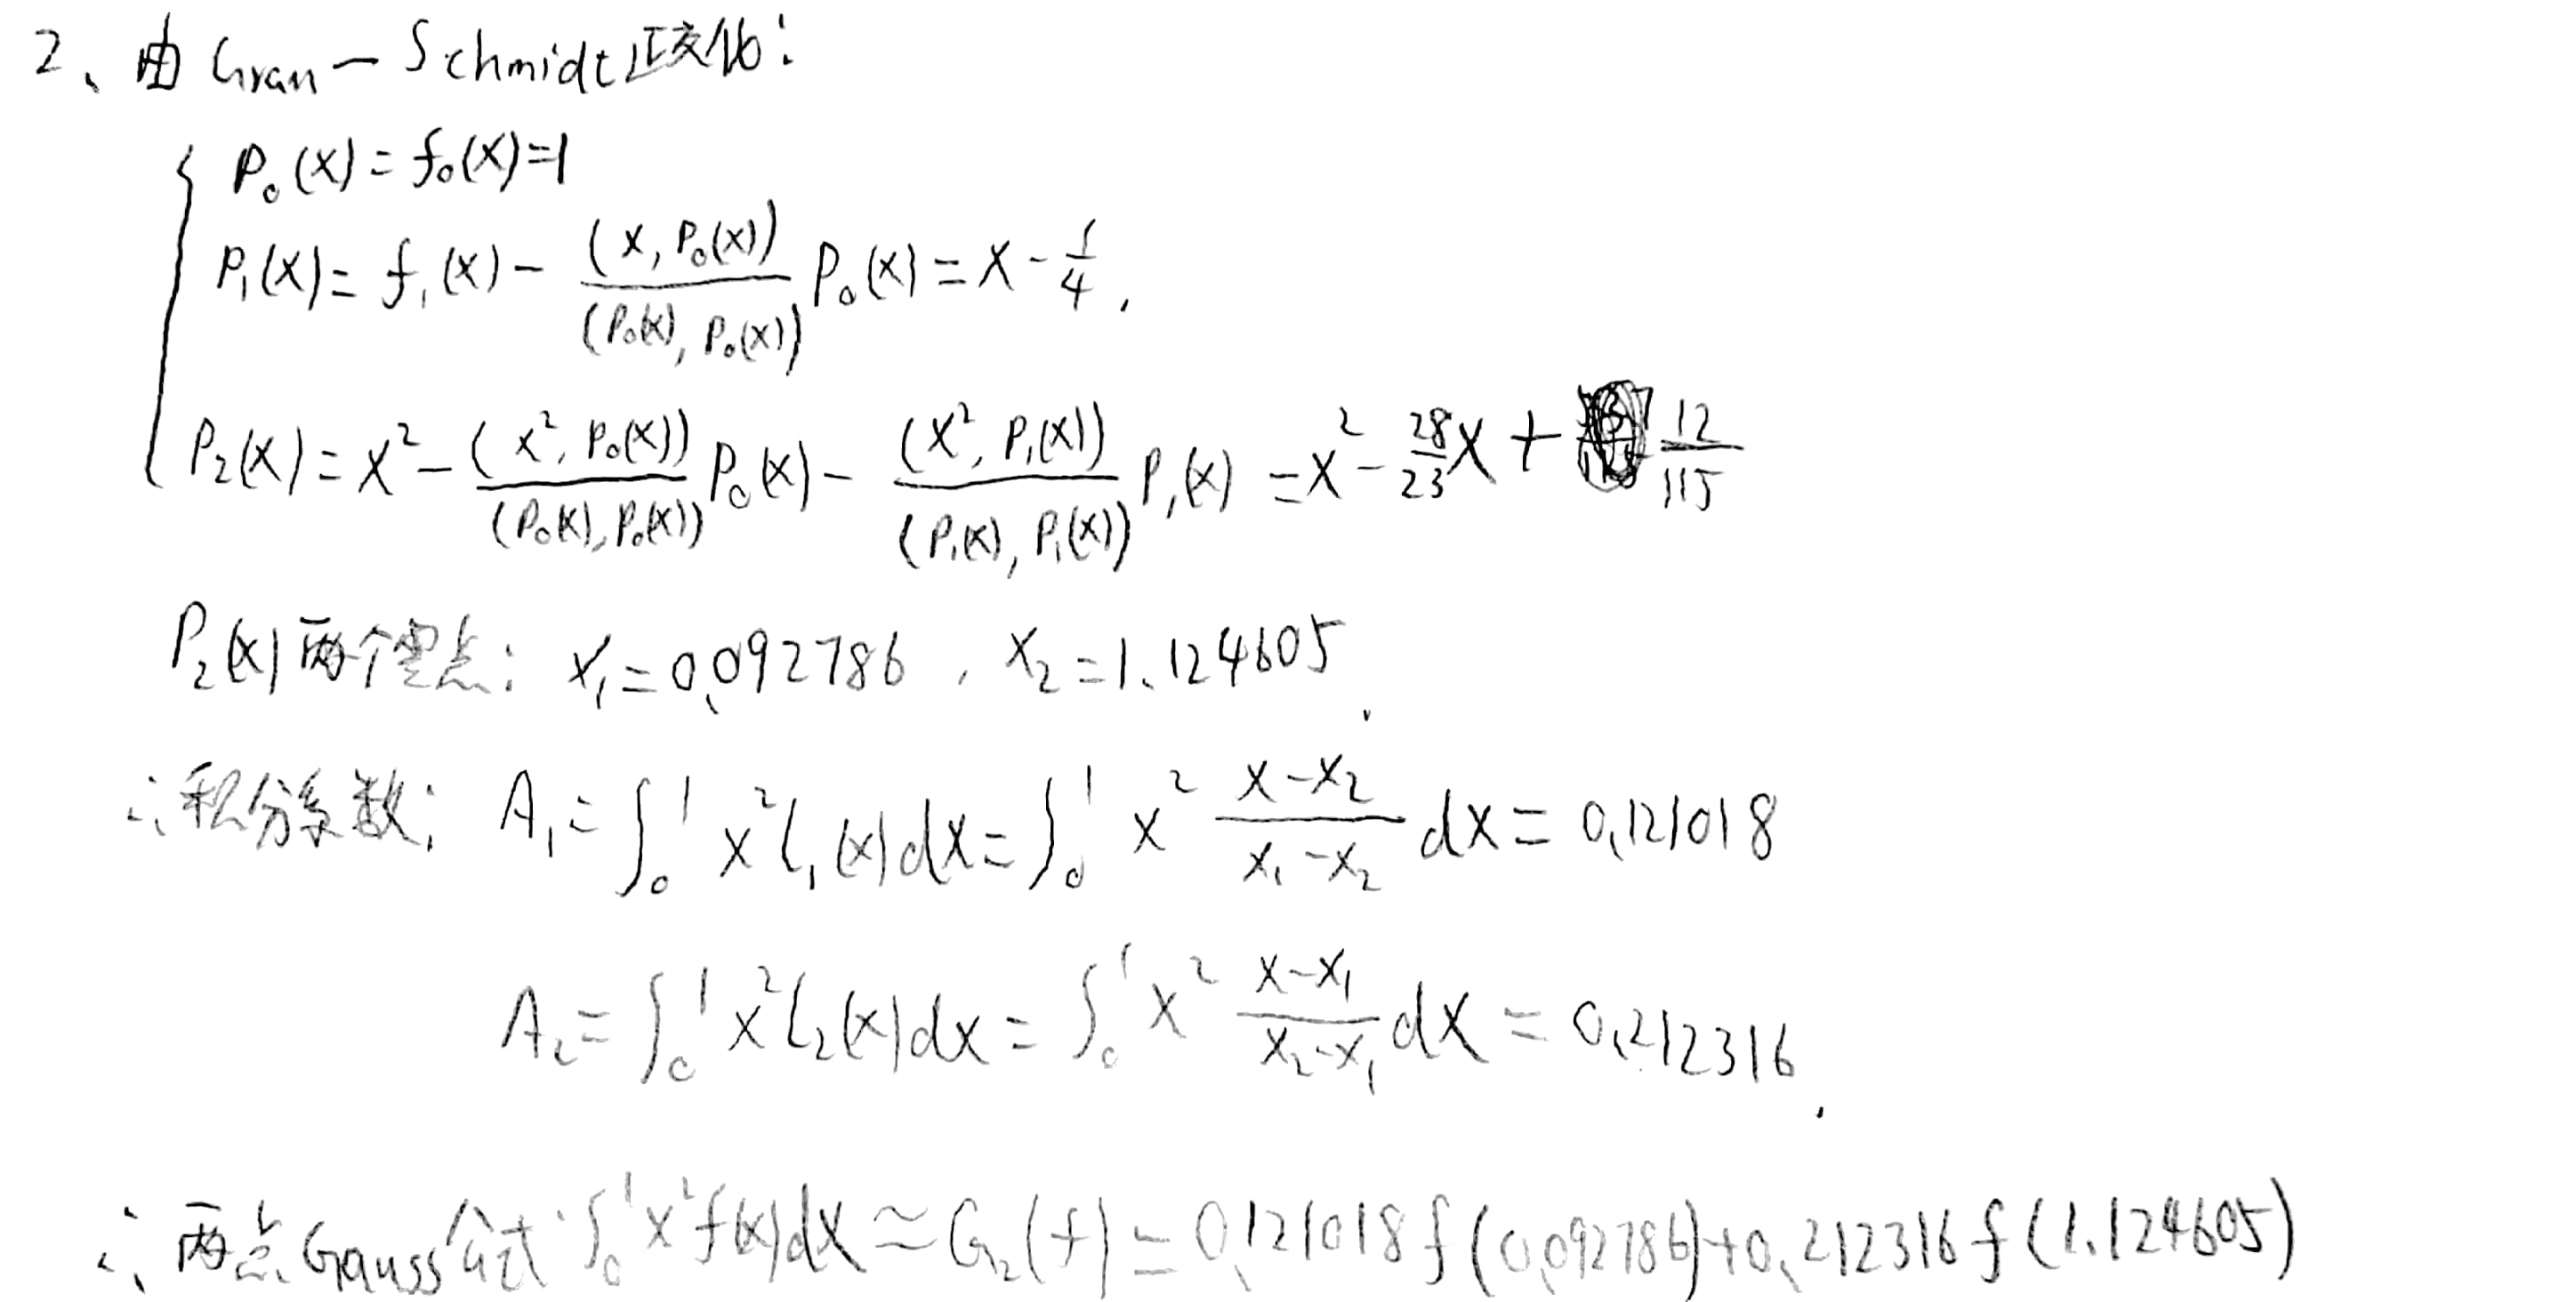 2、由Gran-Schmidt正交化:
P₀(x)=f₀(x)=1
P₁(x)=f₁(x)-\frac{(x,P₀(x))}{(P₀(x),P₀(x))}P₀(x)=x-\frac{1}{4},
P₂(x)=x²-\frac{(x²,P₀(x))}{(P₀(x),P₀(x))}P₀(x)-\frac{(x²,P₁(x))}{(P₁(x),P₁(x))}P₁(x)=x²-\frac{28}{23}x+\frac{12}{115}
P₂(x)两个零点:x₁=0.092786,x₂=1.124605.
∴积分系数:A₁=∫₀¹x²l₁(x)dx=∫₀¹x²\frac{x-x₂}{x₁-x₂}dx=0.121018
A₂=∫₀¹x²l₂(x)dx=∫₀¹x²\frac{x-x₁}{x₂-x₁}dx=0.212316.
∴两点Gauss公式:∫₀¹x²f(x)dx≈G₂(f)=0.121018f(0.092786)+0.212316f(1.124605)